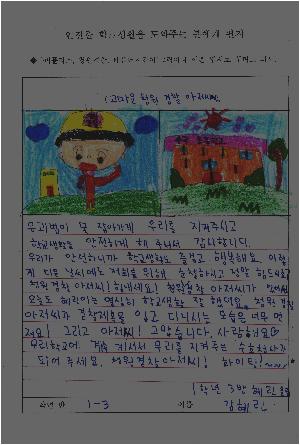 안전한 학교생활을 도와주는 분에게 편지
고마운 청원 경찰 아저씨께
우리 지켜주시고
학교생활을 안전하게 해 주셔서 감사합니다.
우리가 안전하니까 학교생활도 즐겁고 행복해요. 이렇
게 더운 날씨에도 저희를 위해 순찰하시고 정말 힘드시죠?
청원경찰 아저씨! 힘내세요! 청원경찰 아저씨가
오늘도 혜린이는 열심히 학교생활 잘 했어요. 청원 경찰
아저씨가 경찰제복을 입고 다니시는 모습은 너무 멋
져요! 그리고 아저씨! 고맙습니다. 사랑해요
우리학교에 계속 계셔서 우리를 지켜주는
되어 주세요. 청원경찰아저씨! 화이팅!
1학년 3반 혜린 올림
학년 반 1-3 이름 강혜린